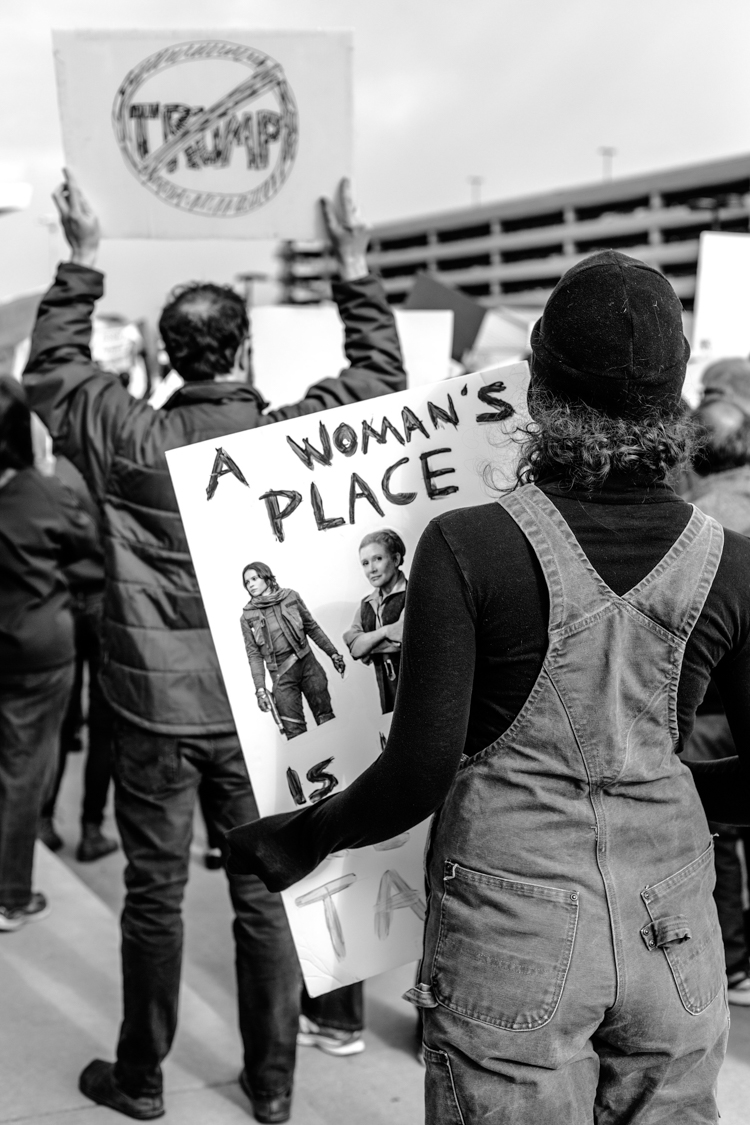 TRUMP
A WOMAN'S
PLACE
IS
TA